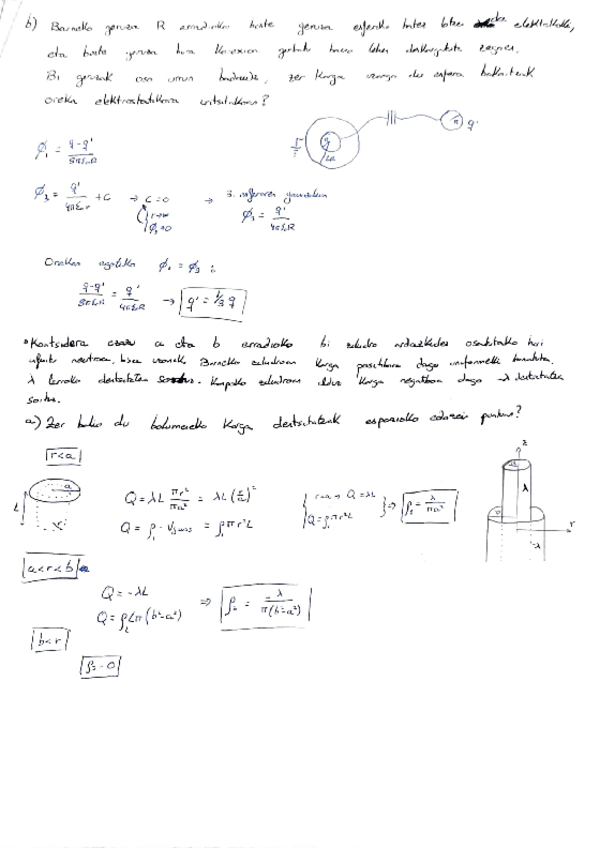 b) Barneko geruza R erradioko beste geruza esferiko batez lotzen da elektrikoki,
eta beste geruza hori konexioa gertatu baino lehen deskargatuta zegoen.
Bi geruzak oso urrun badaude, zer karga izango du esfera bakoitzak
oreka elektrostatikora iritsitakoan?
q q'
R
2R
ϕ₁ = (q-q')/(8πε₀R)
ϕ₃ = q'/(4πε₀r) + C → C=0 → 3. esferaren gainazalean
r→∞
ϕ₃=0
ϕ₃ = q'/(4πε₀R)
Orekan egoteko ϕ₁ = ϕ₃ ;
(q-q')/(8πε₀R) = q'/(4πε₀R) → q' = 1/3 q
Kontsidera ezazu a eta b erradioko bi zilindro ardazkidez osatutako hari
infinitu neutroa. Barneko zilindroan karga positiboa dago uniformeki banatuta
λ dentsitatea. Kanpoko zilindroan karga negatiboa dago -λ
a) Zer balio du bolumeneko karga dentsitateak espazioko edozein puntutan?
r<a
a
L
Q = λL πr²/πa² = λL (r/a)²
Q = ρ₁ · V = ρ₁ πr²L
r=a → Q = λL
Q = ρ₁πr²L
⇒ ρ₁ = λ/πa²
z
λ
r
-λ
a<r<b
Q = -λL
Q = ρ₂Lπ(b²-a²)
⇒ ρ₂ = -λ/π(b²-a²)
b<r
ρ₃ = 0